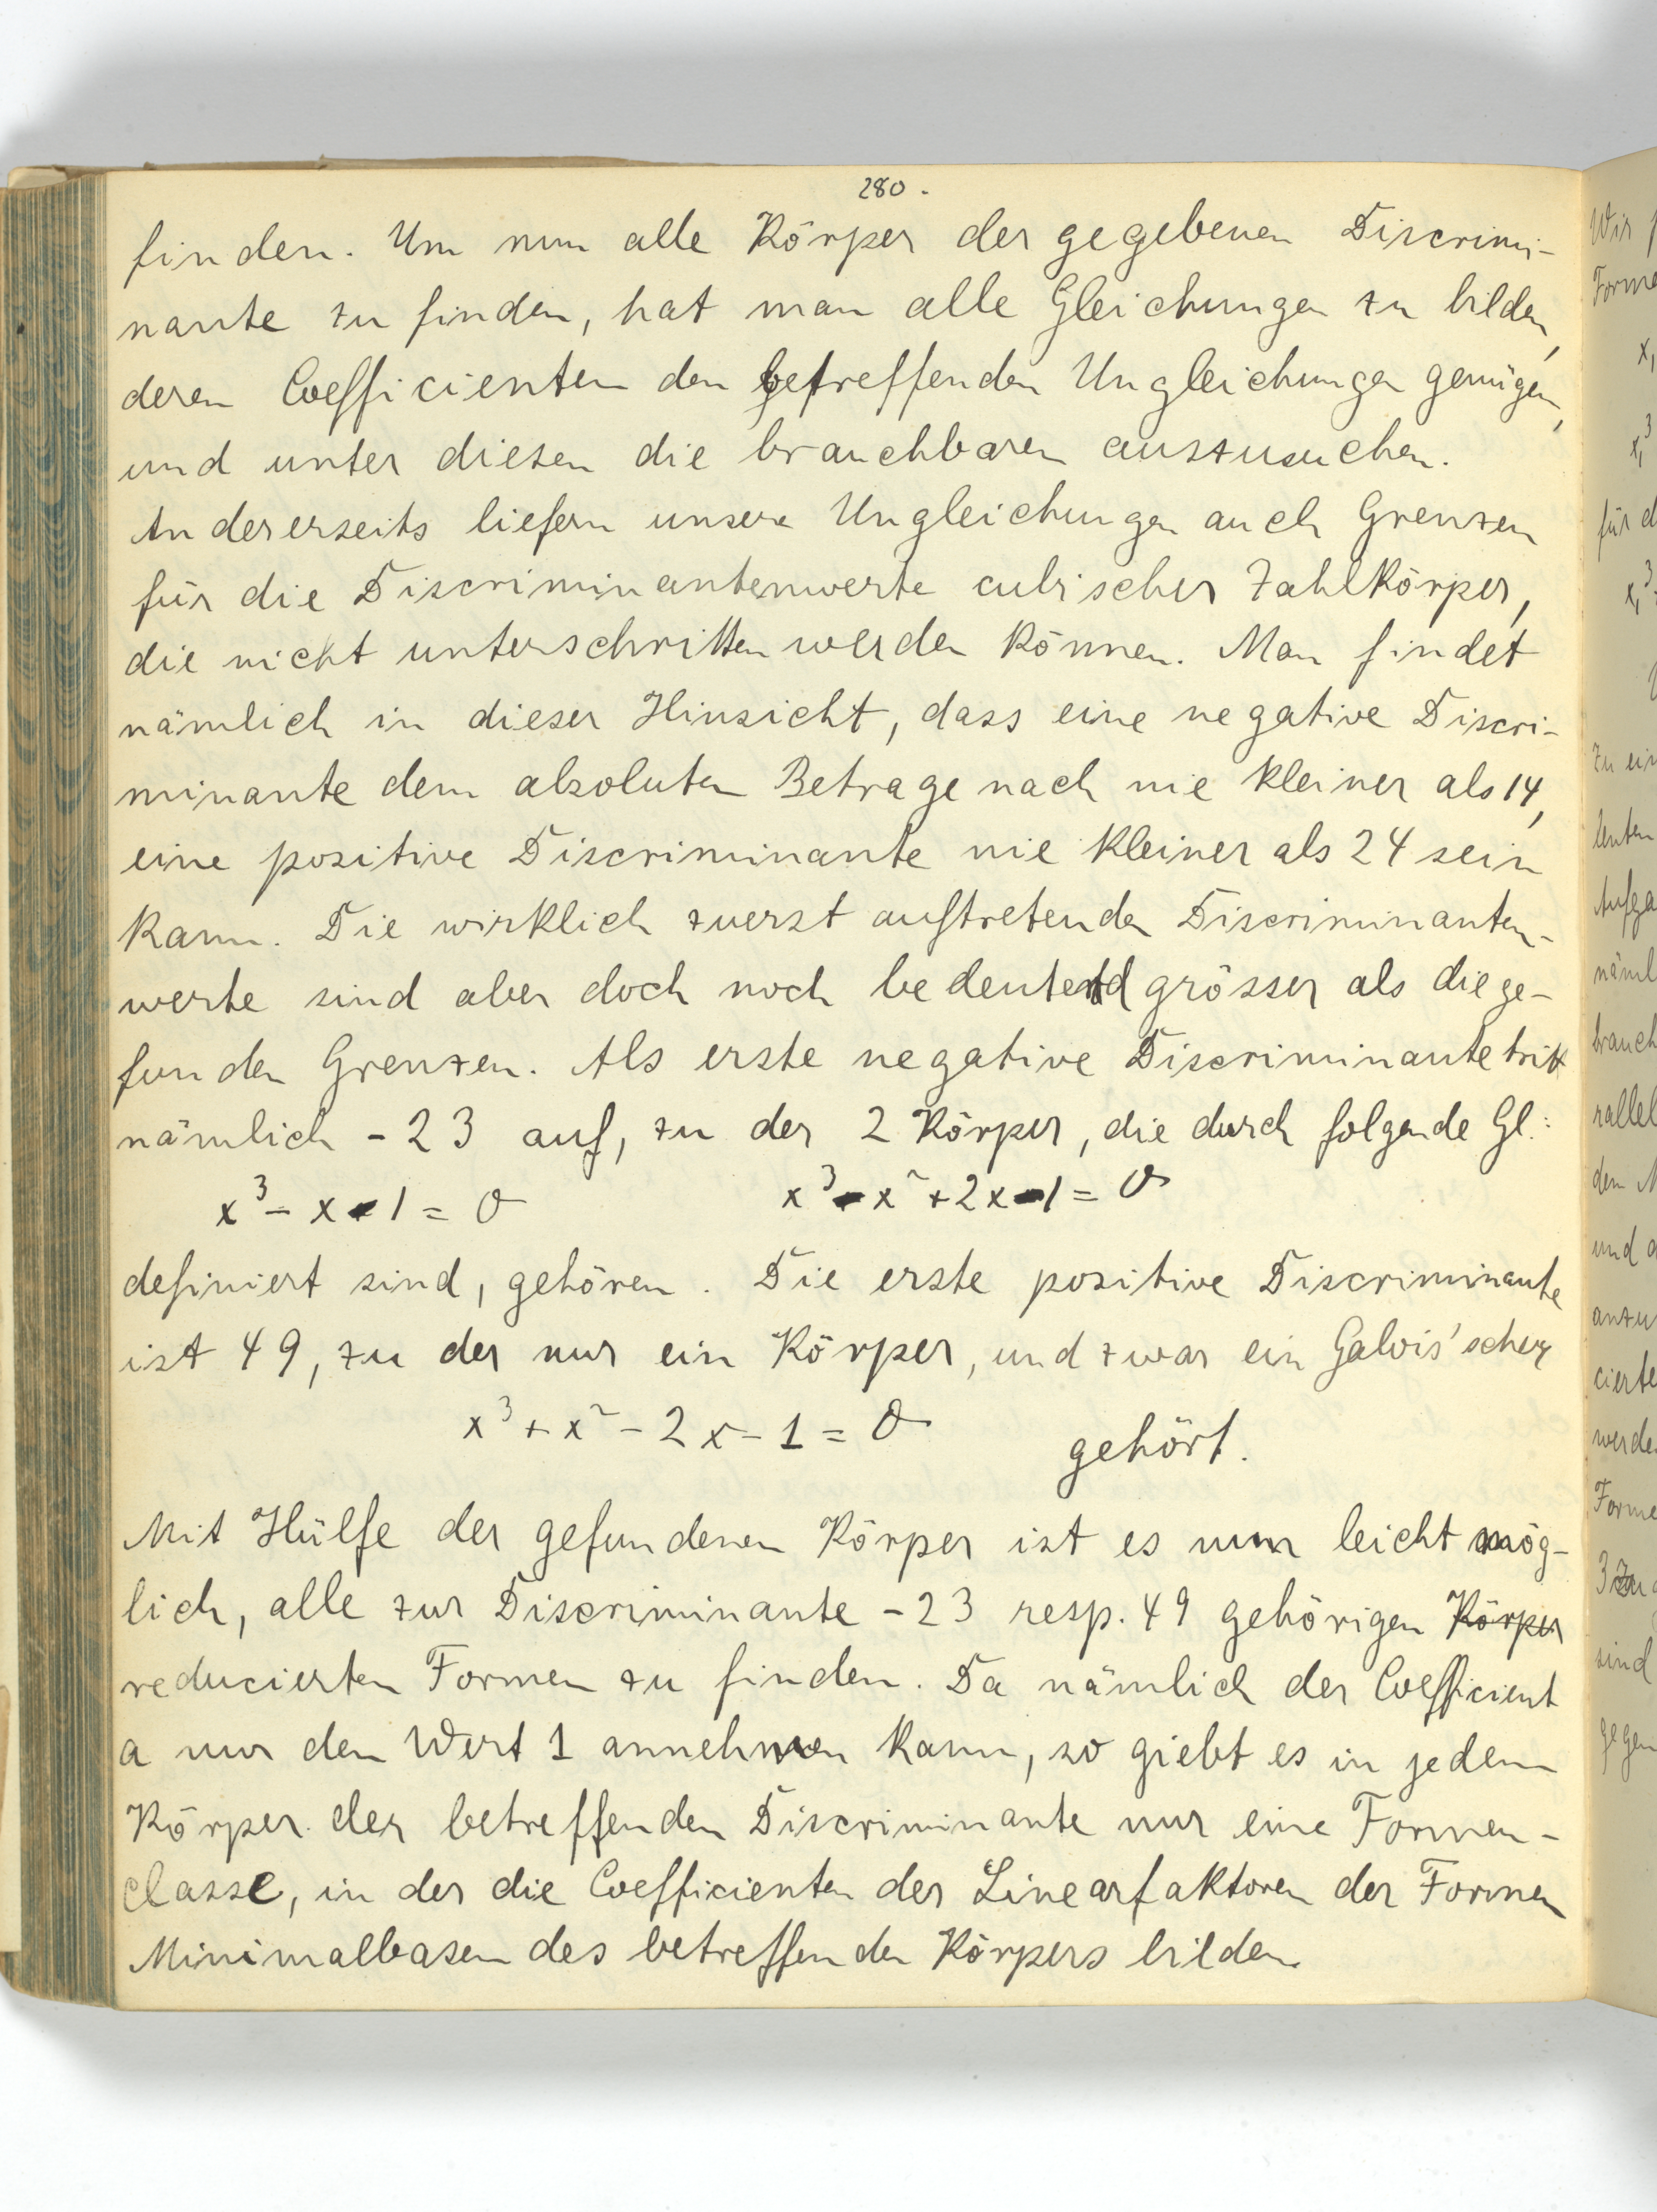 280.
finden. Um nun alle Körper der gegebenen Discrimi-
nante zu finden, hat man alle Gleichungen zu bilden,
deren Coefficienten den betreffenden Ungleichungen genügen,
und unter diesen die brauchbaren auszusuchen.
Andererseits liefern unsere Ungleichungen auch Grenzen
für die Discriminantenwerte cubischer Zahlkörper,
die nicht unterschritten werden können. Man findet
nämlich in dieser Hinsicht, dass eine negative Discri-
minante dem absoluten Betrage nach nie kleiner als 14,
eine positive Discriminante nie kleiner als 24 sein
kann. Die wirklich zuerst auftretenden Discriminanten-
werte sind aber doch noch bedeutend grösser als die ge-
funden Grenzen. Als erste negative Discriminante tritt
nämlich -23 auf, zu der 2 Körper, die durch folgende Gl.:
x³ - x - 1 = 0 x³ - x² + 2x - 1 = 0
definiert sind, gehören. Die erste positive Discriminante
ist 49, zu der nur ein Körper, und zwar ein Galois'scher
x³ + x² - 2x - 1 = 0 gehört.
Mit Hülfe der gefundenen Körper ist es nun leicht mög-
lich, alle zur Discriminante -23 resp. 49 gehörigen Körper
reducierten Formen zu finden. Da nämlich der Coefficient
a nur den Wert 1 annehmen kann, so giebt es in jedem
Körper der betreffenden Discriminante nur eine Formen-
classe, in der die Coefficienten der Linearfaktoren der Formen
Minimalbasen des betreffenden Körpers bilden.